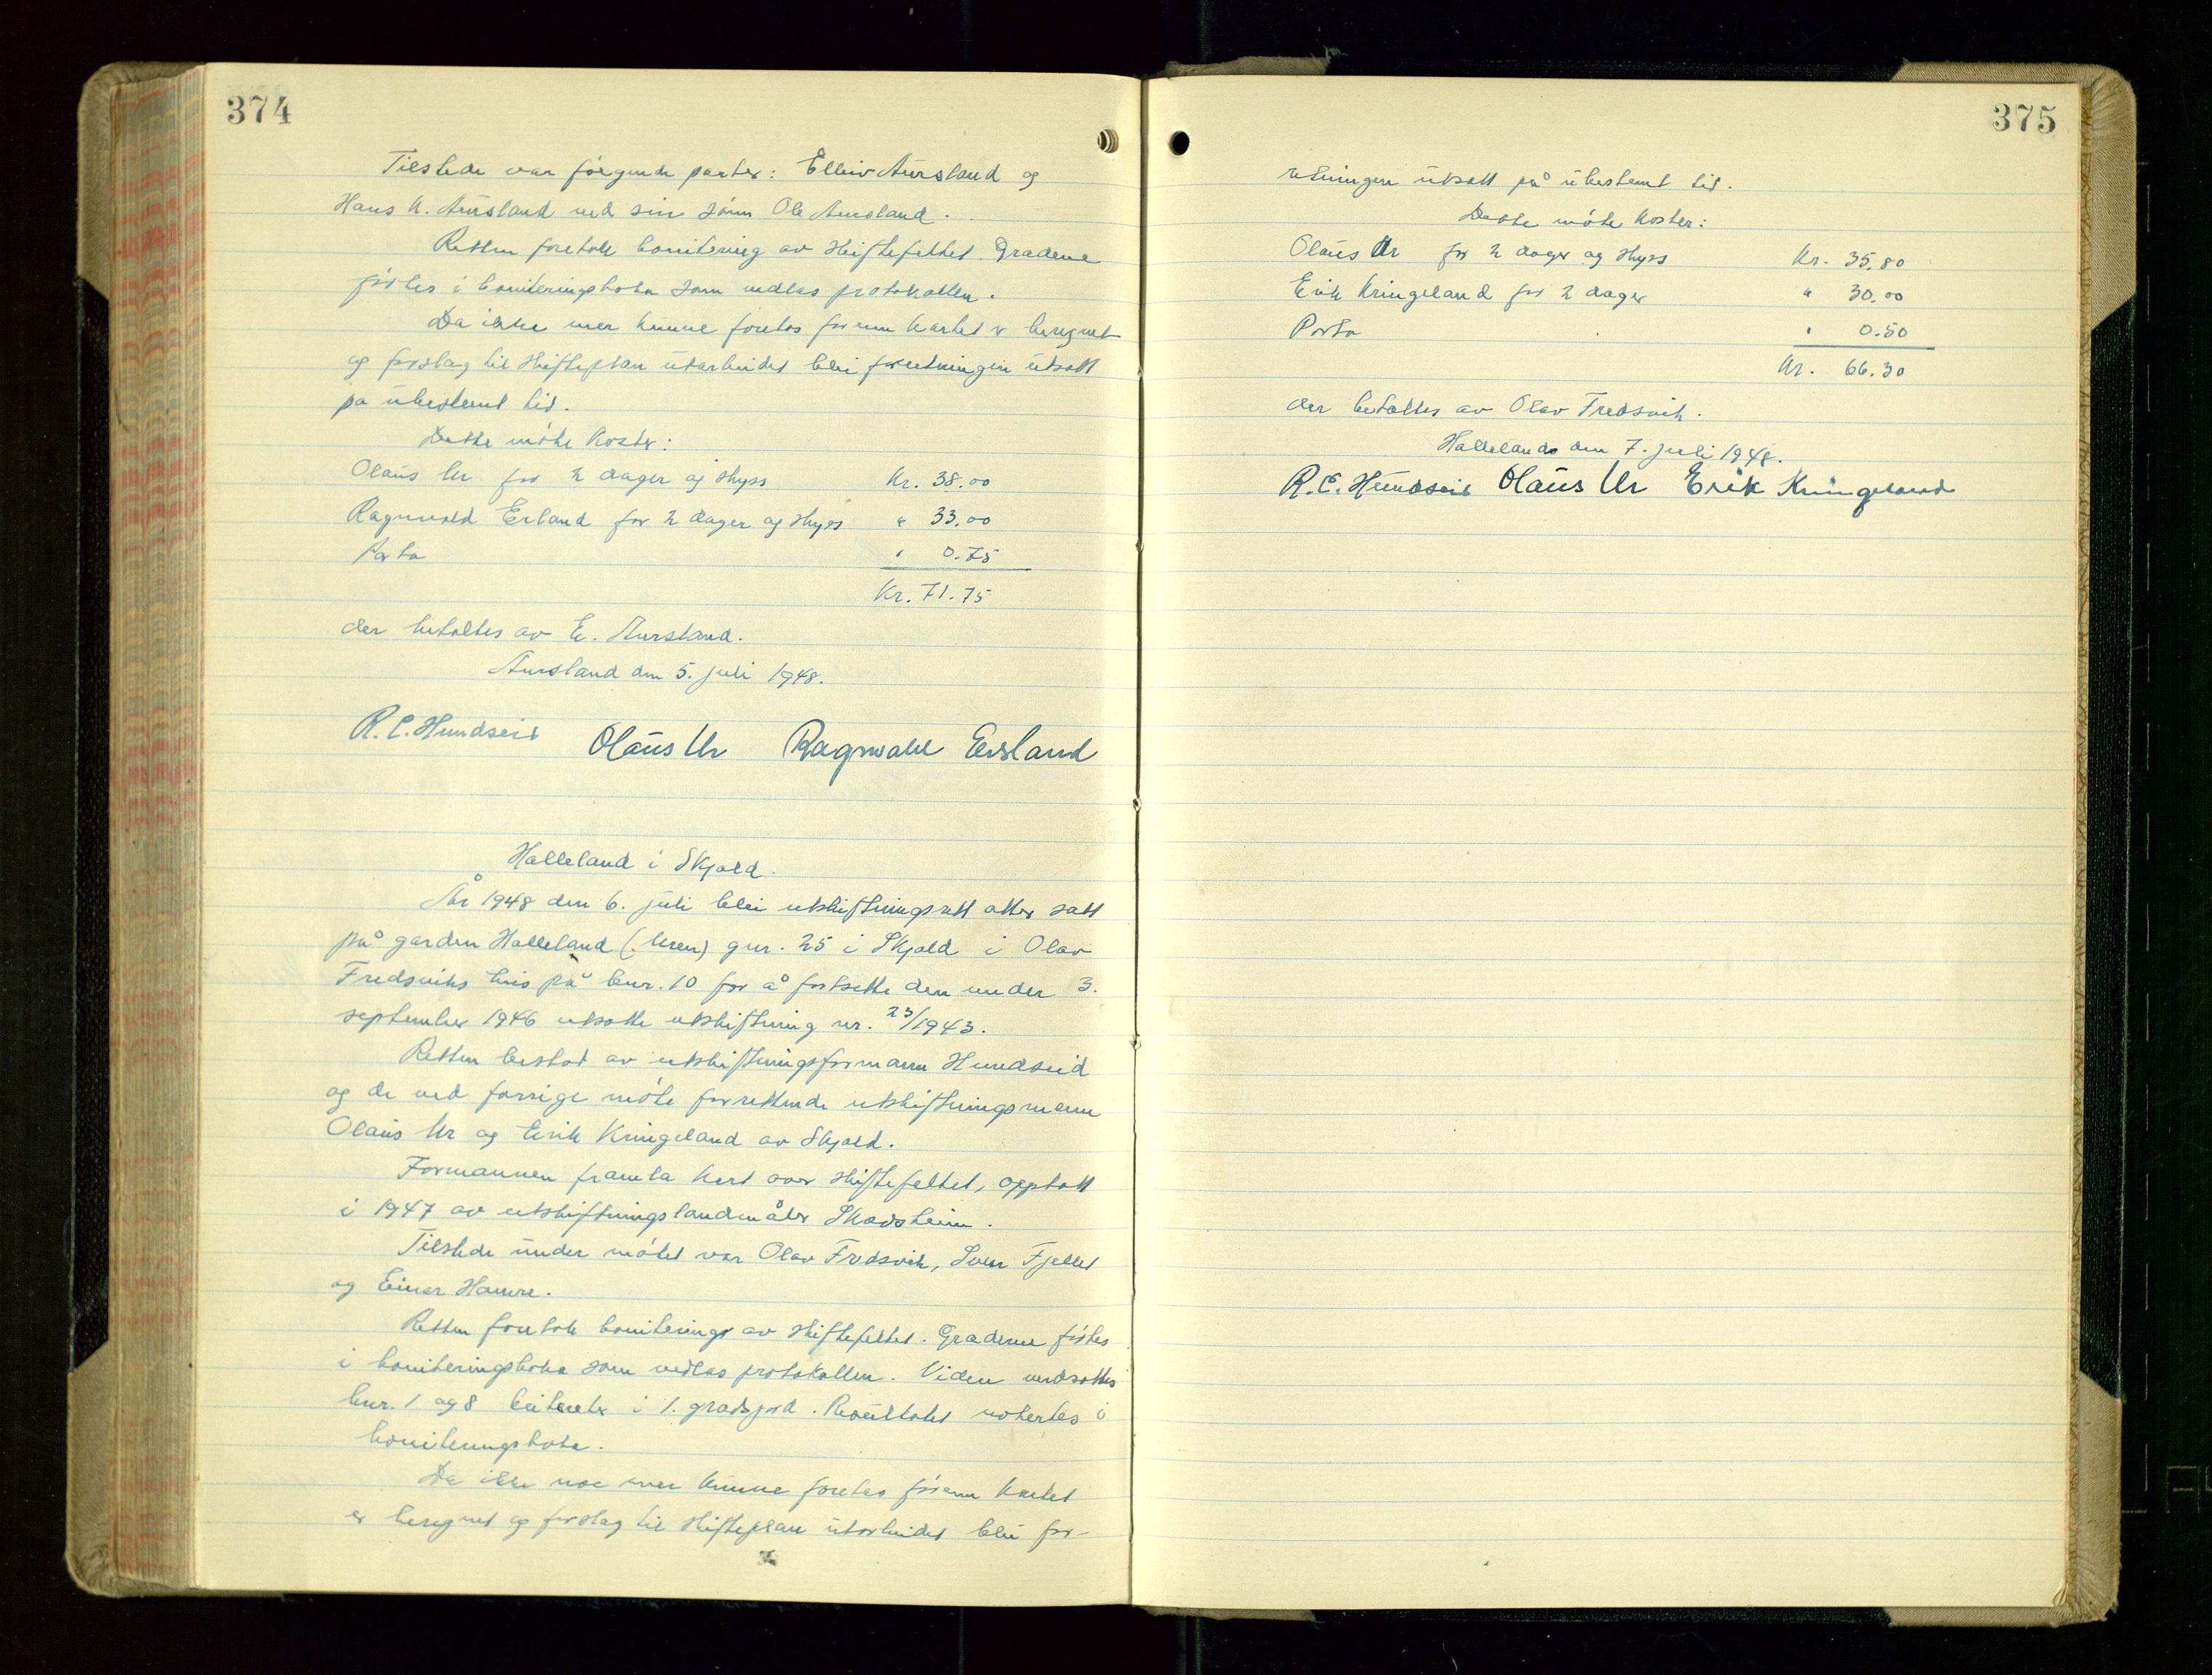 374
Tilstede var følgende parter: Elleiv Aursland og
Hans H. Aursland ved sin sønn Ole Aursland.
Retten foretok bonitering av skiftefeltet. Gradene
førtes i boniteringsboka som vedlas protokollen.
Da ikke mer kunne foretas før enn kartet er beregnet
og forslag til skifteplan utarbeidet blei forretningen utsatt
på ubestemt tid.
Dette møte koster:
Olaus Ur for 2 dager og skyss Kr. 38.00
Ragnvald Erland for 2 dager og skyss " 33.00
Porto " 0.75
Kr. 71.75
der betaltes av E. Aursland.
Aursland den 5. juli 1948.
R. C. Hundseid Olaus Ur Ragnvald Ersland
Halleland i Skjold.
År 1948 den 6. juli blei utskiftningsrett atter satt
på garden Halleland (Uren) gnr. 25 i Skjold i Olav
Fredsviks hus på bnr. 10 for å fortsette den under 3.
september 1946 utsatte utskiftning nr. 23/1943.
Retten bestod av utskiftningsformann Hundseid
og de ved forrige møte forrettende utskiftningsmenn
Olaus Ur og Erik Kringeland av Skjold.
Formannen framla kart over skiftefeltet, opptatt
i 1947 av utskiftningslandmåler Skadsheim.
Tilstede under møtet var Olav Fredsvik, Sven Fjellet
og Einar Hamre.
Retten foretok bonitering av skiftefeltet. Gradene førtes
i boniteringsboka som vedlas protokollen. Viden verdsattes
bnr. 1 og 8 beiteretter i 1. gradsjord. Resultatet notertes i
boniteringsboka.
Da ikke noe mer kunne foretas førenn kartet
er beregnet og forslag til skifteplan utarbeidet blei for-
375
retningen utsatt på ubestemt tid.
Dette møte koster:
Olaus Ur for 2 dager og skyss Kr. 35.80
Erik Kringeland for 2 dager " 30.00
Porto " 0.50
Kr. 66.30
der betaltes av Olav Fredsvik.
Halleland den 7. juli 1948.
R. C. Hundseid Olaus Ur Erik Kringeland